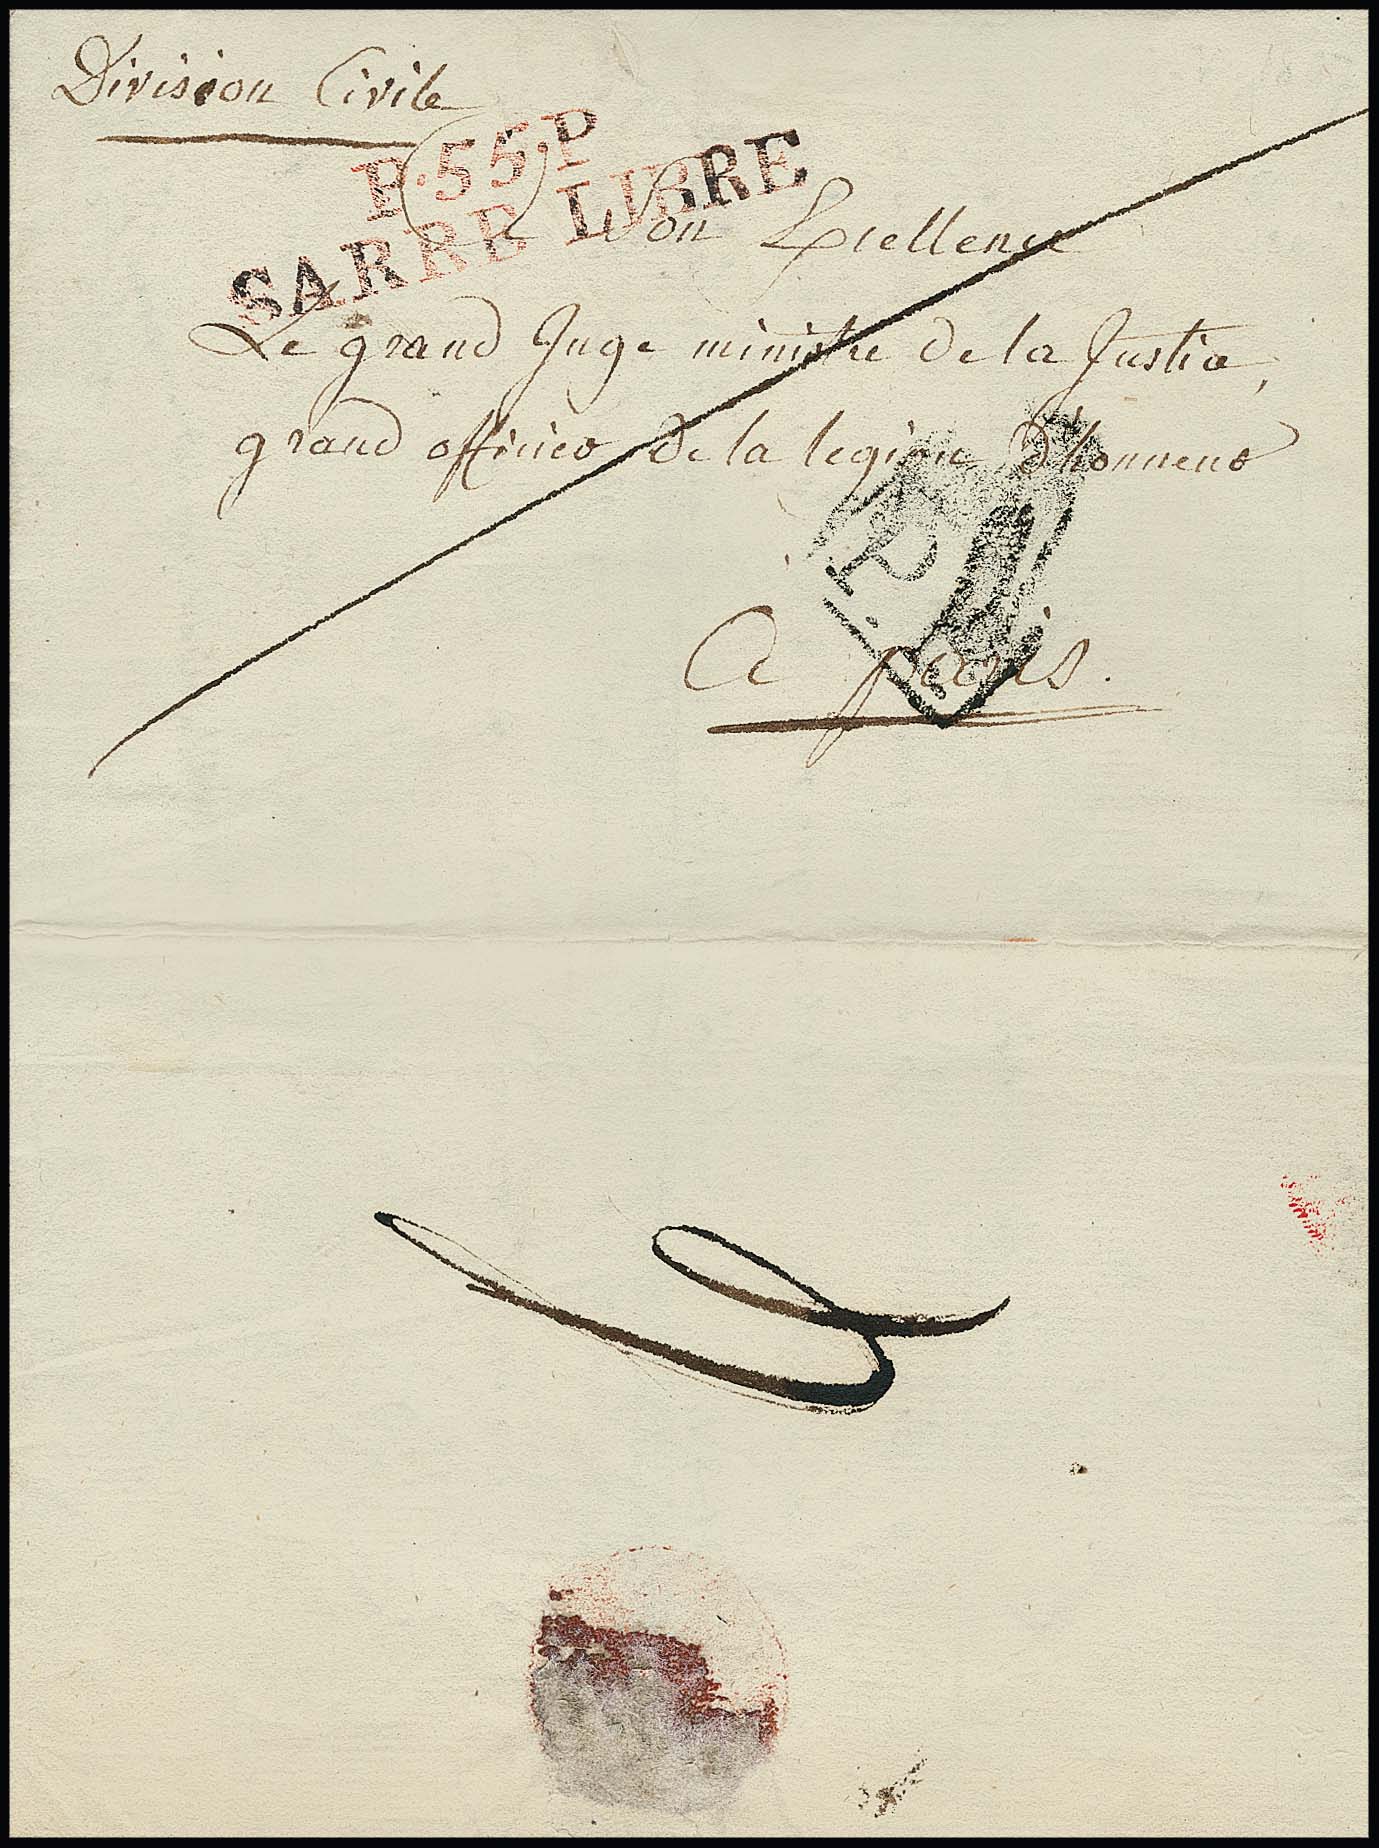 Division Civile
P.55.P
SARRE LIBRE
A Son Excellence
Le grand Juge ministre de la Justice,
grand officier de la legion d'honneur
P.P.
A paris.